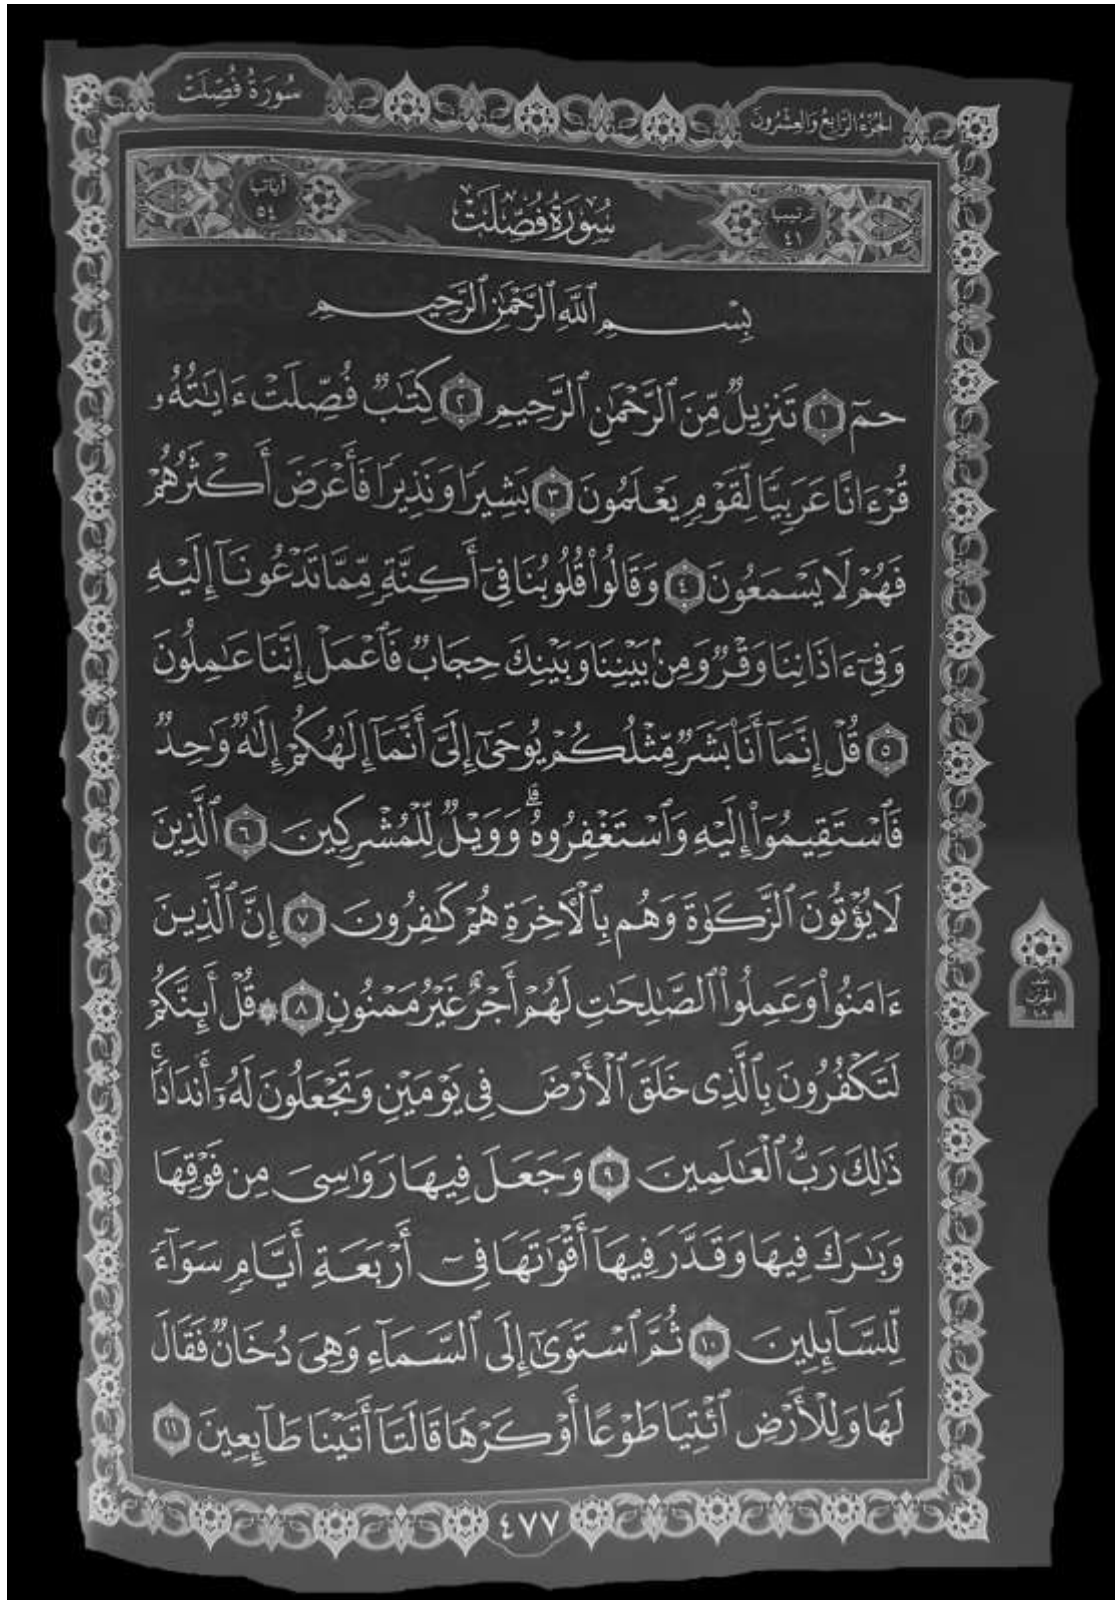 سُورَةُ فُصِّلَتْ
الجُزْءُ الرَّابِعُ وَالعِشْرُونَ
ترتيبها
٤١
سُورَةُ فُصِّلَتْ
آياتها
٥٤
بِسْمِ ٱللَّهِ ٱلرَّحْمَٰنِ ٱلرَّحِيمِ
حمٓ ١ تَنزِيلٌ مِّنَ ٱلرَّحْمَٰنِ ٱلرَّحِيمِ ٢ كِتَٰبٌ فُصِّلَتْ ءَايَٰتُهُۥ
قُرْءَانًا عَرَبِيًّا لِّقَوْمٍ يَعْلَمُونَ ٣ بَشِيرًا وَنَذِيرًا فَأَعْرَضَ أَكْثَرُهُمْ
فَهُمْ لَا يَسْمَعُونَ ٤ وَقَالُوا۟ قُلُوبُنَا فِىٓ أَكِنَّةٍ مِّمَّا تَدْعُونَآ إِلَيْهِ
وَفِىٓ ءَاذَانِنَا وَقْرٌ وَمِنۢ بَيْنِنَا وَبَيْنِكَ حِجَابٌ فَٱعْمَلْ إِنَّنَا عَٰمِلُونَ
٥ قُلْ إِنَّمَآ أَنَا۠ بَشَرٌ مِّثْلُكُمْ يُوحَىٰٓ إِلَىَّ أَنَّمَآ إِلَٰهُكُمْ إِلَٰهٌ وَٰحِدٌ
فَٱسْتَقِيمُوٓا۟ إِلَيْهِ وَٱسْتَغْفِرُوهُ ۗ وَوَيْلٌ لِّلْمُشْرِكِينَ ٦ ٱلَّذِينَ
لَا يُؤْتُونَ ٱلزَّكَوٰةَ وَهُم بِٱلْأَخِرَةِ هُمْ كَٰفِرُونَ ٧ إِنَّ ٱلَّذِينَ
ءَامَنُوا۟ وَعَمِلُوا۟ ٱلصَّٰلِحَٰتِ لَهُمْ أَجْرٌ غَيْرُ مَمْنُونٍ ٨ ۞ قُلْ أَئِنَّكُمْ
لَتَكْفُرُونَ بِٱلَّذِى خَلَقَ ٱلْأَرْضَ فِى يَوْمَيْنِ وَتَجْعَلُونَ لَهُۥٓ أَندَادًا ۚ
ذَٰلِكَ رَبُّ ٱلْعَٰلَمِينَ ٩ وَجَعَلَ فِيهَا رَوَٰسِىَ مِن فَوْقِهَا
وَبَٰرَكَ فِيهَا وَقَدَّرَ فِيهَآ أَقْوَٰتَهَا فِىٓ أَرْبَعَةِ أَيَّامٍ سَوَآءً
لِّلسَّآئِلِينَ ١٠ ثُمَّ ٱسْتَوَىٰٓ إِلَى ٱلسَّمَآءِ وَهِىَ دُخَانٌ فَقَالَ
لَهَا وَلِلْأَرْضِ ٱئْتِيَا طَوْعًا أَوْ كَرْهًا قَالَتَآ أَتَيْنَا طَآئِعِينَ ١١
الحزب
٤٧٧